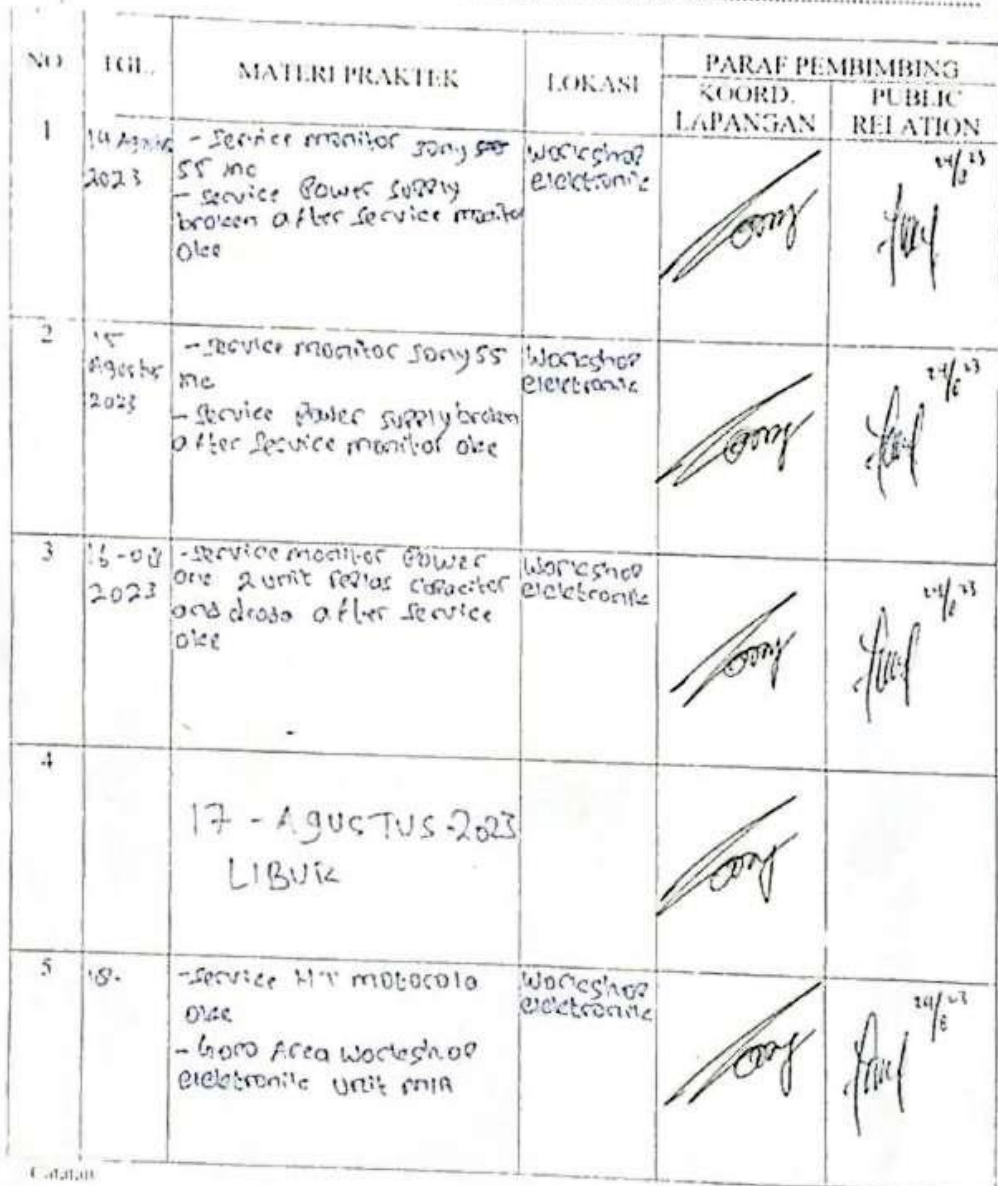 NO
TGL.
MATERI PRAKTEK
LOKASI
PARAF PEMBIMBING
KOORD.
LAPANGAN
PUBLIC
RELATION
1
14
2023
- Service monitor sony
55 inc
- service Power supply
broken after service monitor
oke
Workshop
elektronik
2
15
Agustus
2023
- Service monitor sony 55
inc
- Service power supply broken
after service monitor oke
Workshop
elektronik
24/8 23
3
16-08
2023
- Service monitor Power
one 2 unit capacitor
and after service
oke
Workshop
elektronik
4
17 - AgUSTUS-2023
LIBUR
5
18-
- Service HT motorola
oke
- Area Workshop
elektronik unit
Workshop
elektronik
24/8 23
Catatan